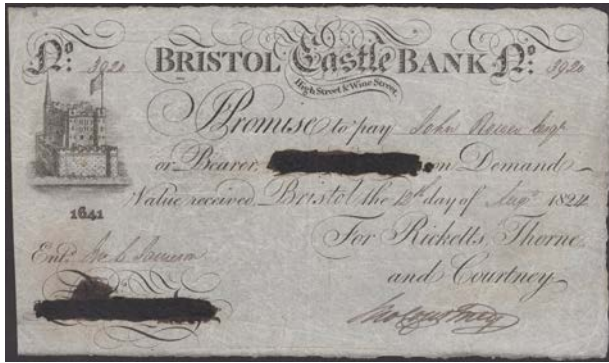 No. 3920 BRISTOL Castle BANK No. 3920
High Street & Wine Street
I Promise to pay John
or Bearer, on Demand
Value received, Bristol the 12th day of Augt. 1824
1641
For Ricketts, Thorne
Entd.
and Courtney